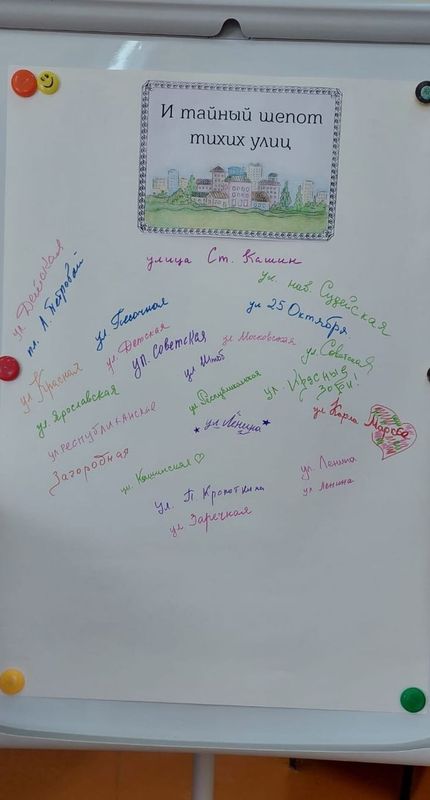 И тайный шепот
тихих улиц
улица Ст. Кашин
ул. наб. Судейская
ул. Детская
пл. Л. Петровой
ул. Песочная
ул 25 Октября
ул. Детская
ул. Советская
ул Московская
ул. Советская
ул. Красная
ул. Штаб
ул. Ярославская
ул. Республиканская
ул. Красные
зори!
ул республиканская
ул Карла Маркса
* ул Ленина *
Загородная
ул. Кашинская
ул. Ленина
ул. Ленина
ул. П. Кропоткина
ул Заречная